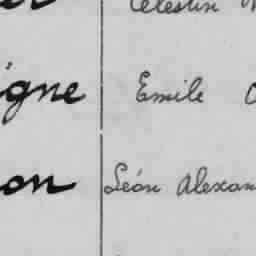 Célestin
igne Emile
on Léon Alexan